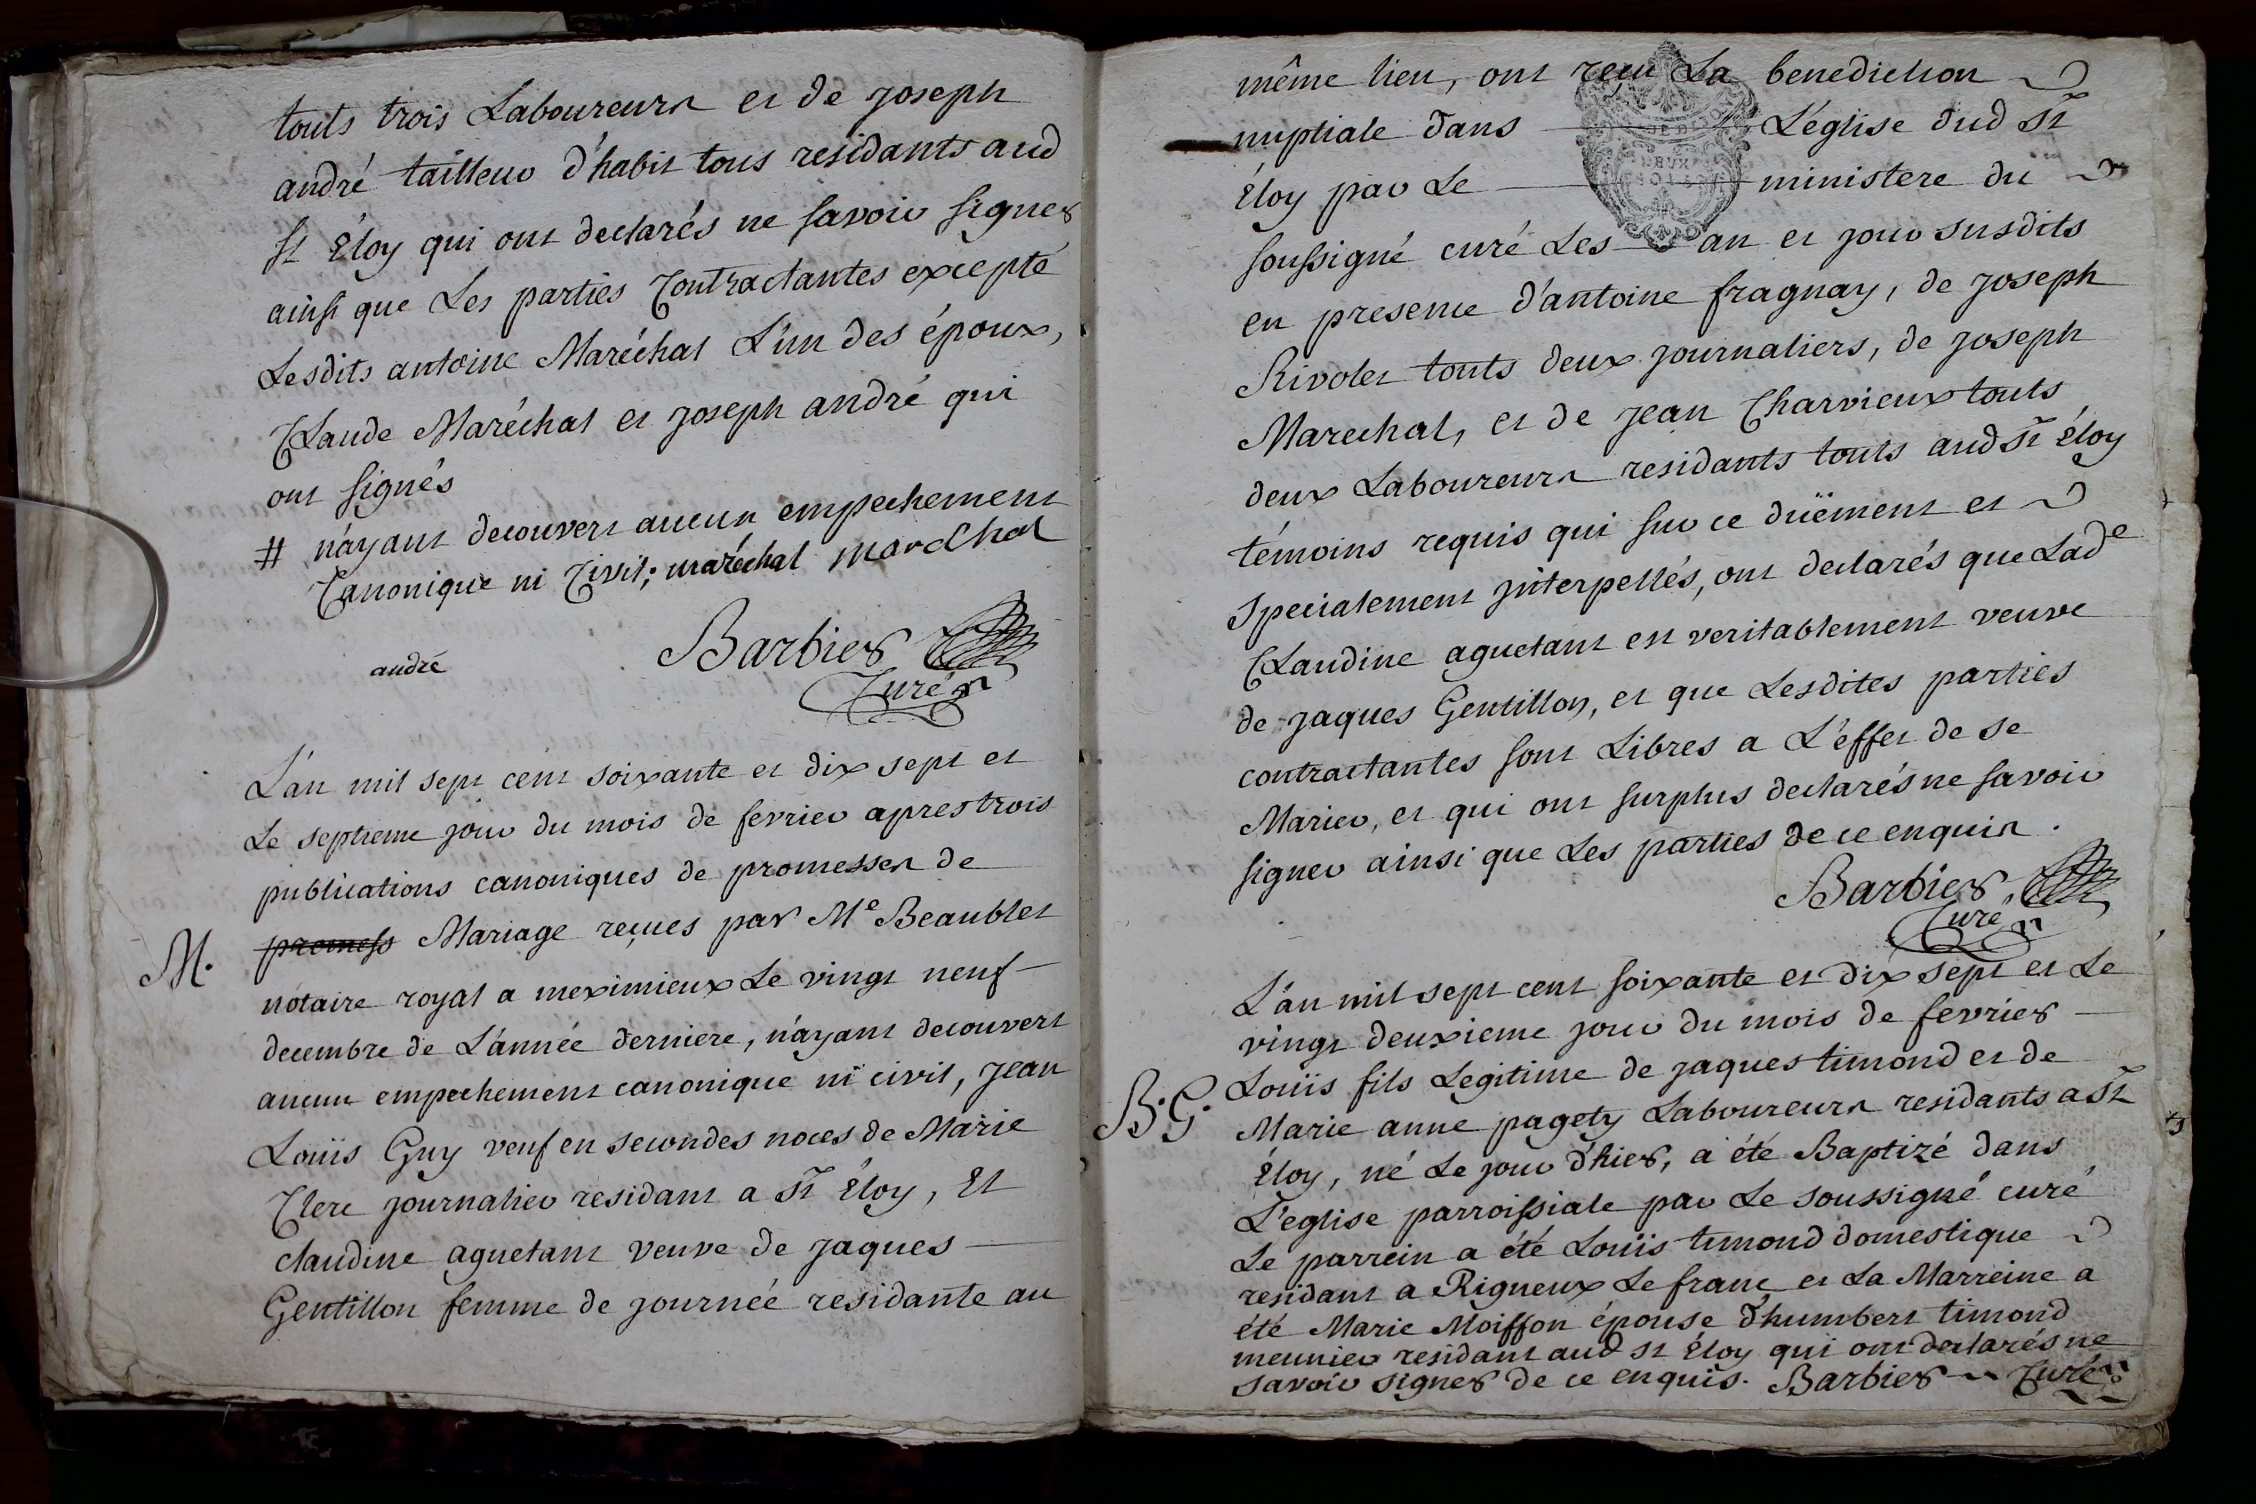 touts trois Laboureurs et de joseph
andré tailleur d'habit tous residants aud
st Éloy qui ont declarés ne savoir signer
ainsi que Les parties Contractantes excepté
Lesdits antoine Maréchal L'un des époux,
Claude Maréchal et joseph andré qui
ont signés
# n'ayant decouvert aucun empechement
Canonique ni Civil; maréchal marechal
andré
Barbier
Curé
L'an mil sept cent soixante et dix sept et
Le septieme jour du mois de fevrier apres trois
publications canoniques de promesses de
M. promess Mariage reçues par Me Beaublet
notaire royal a meximieux Le vingt neuf
decembre de L'année derniere, n'ayant decouvert
aucun empechement canonique ni civil, jean
Louis Guy veuf en secondes noces de Marie
Clerc journalier residant a St Éloy, Et
claudine aguetant veuve de jaques
Gentillon femme de journée residante au
même lieu, ont reçu La benediction
nuptiale dans L'église dud St
Éloy par Le ministere du
soussigné curé Les an et jour susdits
en presence d'antoine fragnay, de joseph
Rivolet touts deux journaliers, de joseph
Marechal, et de jean Charvieux touts
deux Laboureurs residants touts aud St Éloy
témoins requis qui sur ce düement et
specialement jnterpellés, ont declarés que Lade
Claudine aguetant est veritablement veuve
de jaques Gentillon, et que Lesdites parties
contractantes sont Libres a L'effet de se
Marier, et qui ont surplus declarés ne savoir
signer ainsi que Les parties de ce enquis.
Barbier
Curé
L'an mil sept cent soixante et dix sept et Le
vingt deuxieme jour du mois de fevrier
Louïs fils Legitime de jaques timond et de
B. G. Marie anne pagety Laboureurs residants a St
Éloy, né Le jour d'hier, a été Baptizé dans
L'eglise parroissiale par Le soussigné curé
Le parrein a été Louïs timond domestique
residant a Rigneux Le franc et La Marreine a
été Marie Moiffon épouse d'humbert timond
meunier residant aud st Éloy qui ont declarés ne
savoir signer de ce enquis. Barbier Curé